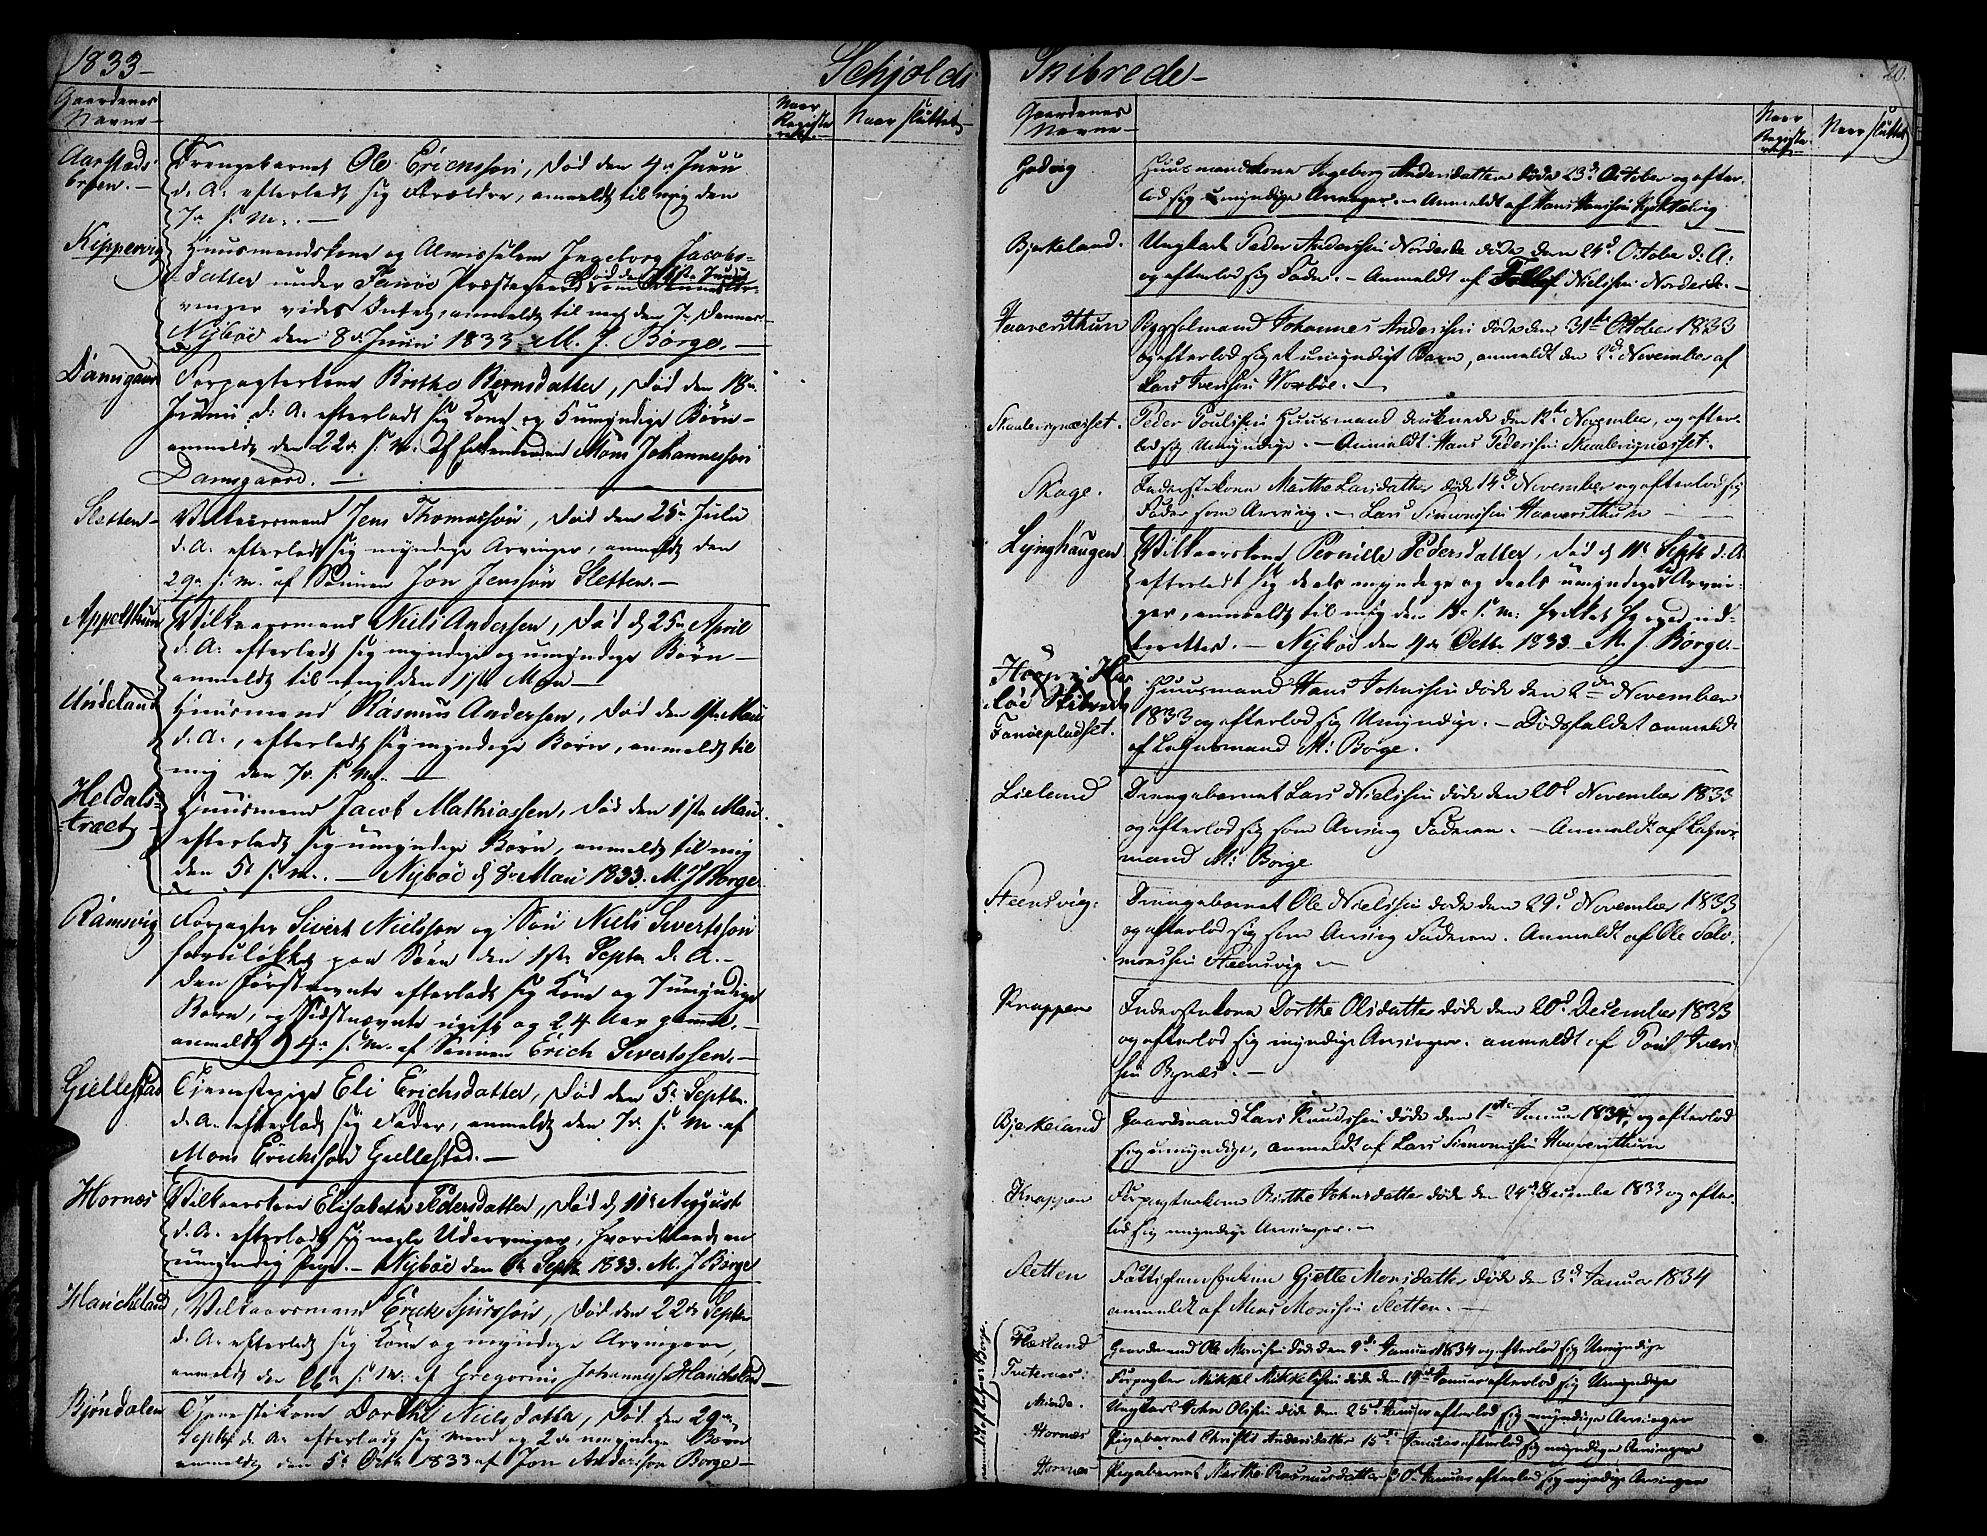 1833 –
Schjolds
Gaardenes
Navne –
Naar
Registe
Naar sluttet
Aarstads
Drengebarnet Ole Erichssøn, død den 4de Juni
d. A. efterladt sig Forældre, anmeldt til mig den
7de s. M. –
Kippervig
Huusmandskone og Almisselem Ingeborg Jacobs-
datter under Fanøe Præstegaard
venger vides Intet, anmeldt til mig den 7de
Nybøe den 8de Juni 1833 M. J. Børge. –
Damsgaard
Forpagterkone Brithe Berntsdatter, død den 18de
Juni d. A. efterladt sig Kone og 5 umyndige Børn –
anmeldt den 22de s. M. af Enkemanden Mons Johannessøn
Damsgaard. –
Sletten –
Vilkaarsmand Jens Thomassøn, død den 25de Julii
d. A. efterladt sig myndige Arvinger, anmeldt den
29de s. M. af Sønnen Jon Jenssøn Sletten. –
Appelthun
Vilkaarsmand Niels Andersen, død d. 25de April
d. A. efterladt sig myndige og umyndige Børn –
anmeldt til mig den 1ste Mai –
Undeland
Huusmand Rasmus Andersen, død den 1ste Mai
d. A., efterladt sig myndige Børn, anmeldt til
mig den 7de s. M. –
Heldals-
træet
Huusmand Jacob Mathiassen, død den 1ste Mai
efterladt sig umyndige Børn, anmeldt til mig
den 5te s. M. – Nybøe d. 8de Mai 1833. M. J. Børge
Ramsvig
Forpagter Sivert Nielssøn og Søn Niels Sivertssøn
forulykket paa Søen den 1ste Septbr. d. A. –
den Førstnævnte efterladt sig Kone og 7 umyndige
Børn, og Sidstnævnte ugift og 24 Aar gammel. –
anmeldt d. 4de s. M. af Sønnen Erich Sivertssen. –
Gjellestad
Tjenestepige Eli Erichsdatter, død den 5te Septbr.
d. A. efterladt sig Fader, anmeldt den 7de s. M. af
Mons Erichssøn Gjellestad. –
Hornæs
Vilkaarskone Elisabeth Pedersdatter, død d. 11te August
d. A. efterladt sig nogle Udarvinger, hvoriblandt en
umyndig Pige. – Nybøe den 6te Septbr. 1833. M. J. Børge
Hancheland
Vilkaarsmand Erick Sjurssøn, død den 22de Septbr
d. A. efterladt sig Kone og myndige Arvinger,
anmeldt den 26de s. M. af Gregorius Johannes. Hancheland –
Bjøndalen
Tjenestekone Dorthe Nielsdatter, død den 29de
Septbr d. A. efterladt sig Mand og 2de umyndige Børn
anmeldt den 5te Octbr 1833 af Jon Anderssøn Børge –
Skibrede –
20.
Gaardenes
Navne –
Naar
Registe
Naar sluttet
Godvig
Huusmandskone Ingeborg Andersdatter døde 23de October og efter-
lod sig umyndige Arvinger. – Anmeldt af Hans Hanssen
Bjerkeland.
Ungkarl Peder Anderssen Norderde døde den 24de October d. A.
og efterlod sig Fader. – Anmeldt af Tollef Nielssen Norderde. –
Haaversthun
Bygselmand Johannes Anderssen døde den 31te October 1833
og efterlod sig et umyndigt Barn, anmeldt den November af
Lars Iverssen
Skaalevignæsset.
Peder Poulssen Huusmand druknede den 12te November, og efter-
lod sig Umyndige. – Anmeldt: Hans Pederssen Skaalevignæsset. –
Skage.
Inderstekone Marthe Larsdatter døde 14de November og efterlod sig
Fader som Arving. – Lars Simonssen Haaversthun
Lynghaugen
Vilkaarskone Pernille Pedersdatter, død d. 11te Septbr d. A.
efterladt sig deels myndige og deels umyndige Arvin-
ger, anmeldt til mig den 18de s. M.
Nybøe den 4de Octbr. 1833. M. J. Børge. –
Fanøepladset.
Huusmand Hans Johnssen døde den 2den November
1833 og efterlod sig Umyndige. – Dødsfaldet anmeldt
af Lehnsmand M. Børge.
Lieland
Drengebarnet Lars Nielssen døde den 20de November 1833
og efterlod sig som Arving Faderen. – Anmeldt af Lehns-
mand M. Børge
Steensvig.
Drengebarnet Ole Nielssen døde den 29de November 1833
og efterlod sig som Arving Faderen. Anmeldt af Ole Salo-
monssen Steensvig –
Knappen
Inderstekone Dorthe Olsdatter døde den 20de December 1833
og efterlod sig myndige Arvinger. anmeldt af Poul Iver-
sen Bynæs. –
Bjerkeland
Gaardmand Lars Knudssen døde den 1ste Januar 1834, og efterlod
sig umyndige, anmeldt af Lars Simonssen Haaversthun
Knappen
Forpagterkone Birthe Johnsdatter døde den 24de December 1833 og efter-
lod sig myndige Arvinger. –
Sletten
Fattiglems Enken Gjette Monsdatter døde den 3de Januar 1834
anmeldt af Mons Monssen Sletten. –
Flæsland
Gaardmand Ole Monssen døde den 9de Januar 1834 og efterlod sig Umyndige
Forpagter Mikkel Mikkelssen døde den 19de Januar efterlod sig Umyndige
Minde.
Ungkarl John Olssen døde den 25de Januar efterlod sig myndige Arvinger
Hornæs
Pigebarnet Christi Andersdatter 15de Januar efterlod sig myndige Arvinger
Hornæs
Pigebarnet Marthe Rasmusdatter 30te Januar efterlod sig myndige Arvinger